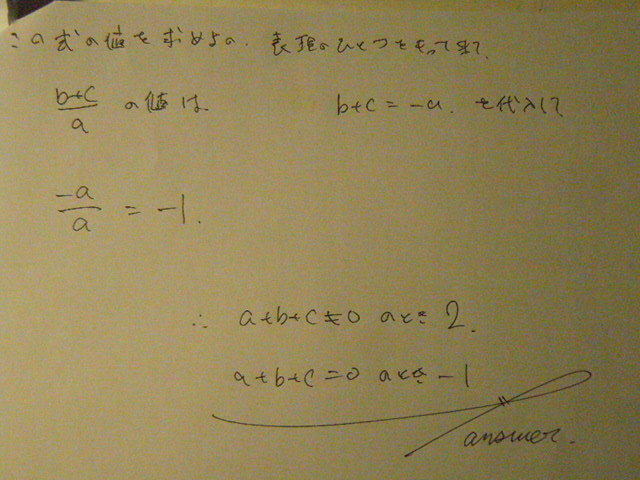 この式の値を求めるの、 をもって来て、
b+c/a の値は、 b+c = -a. を代入して
-a/a = -1.
∴ a+b+c≠0 のとき 2.
a+b+c=0 のとき -1
answer.